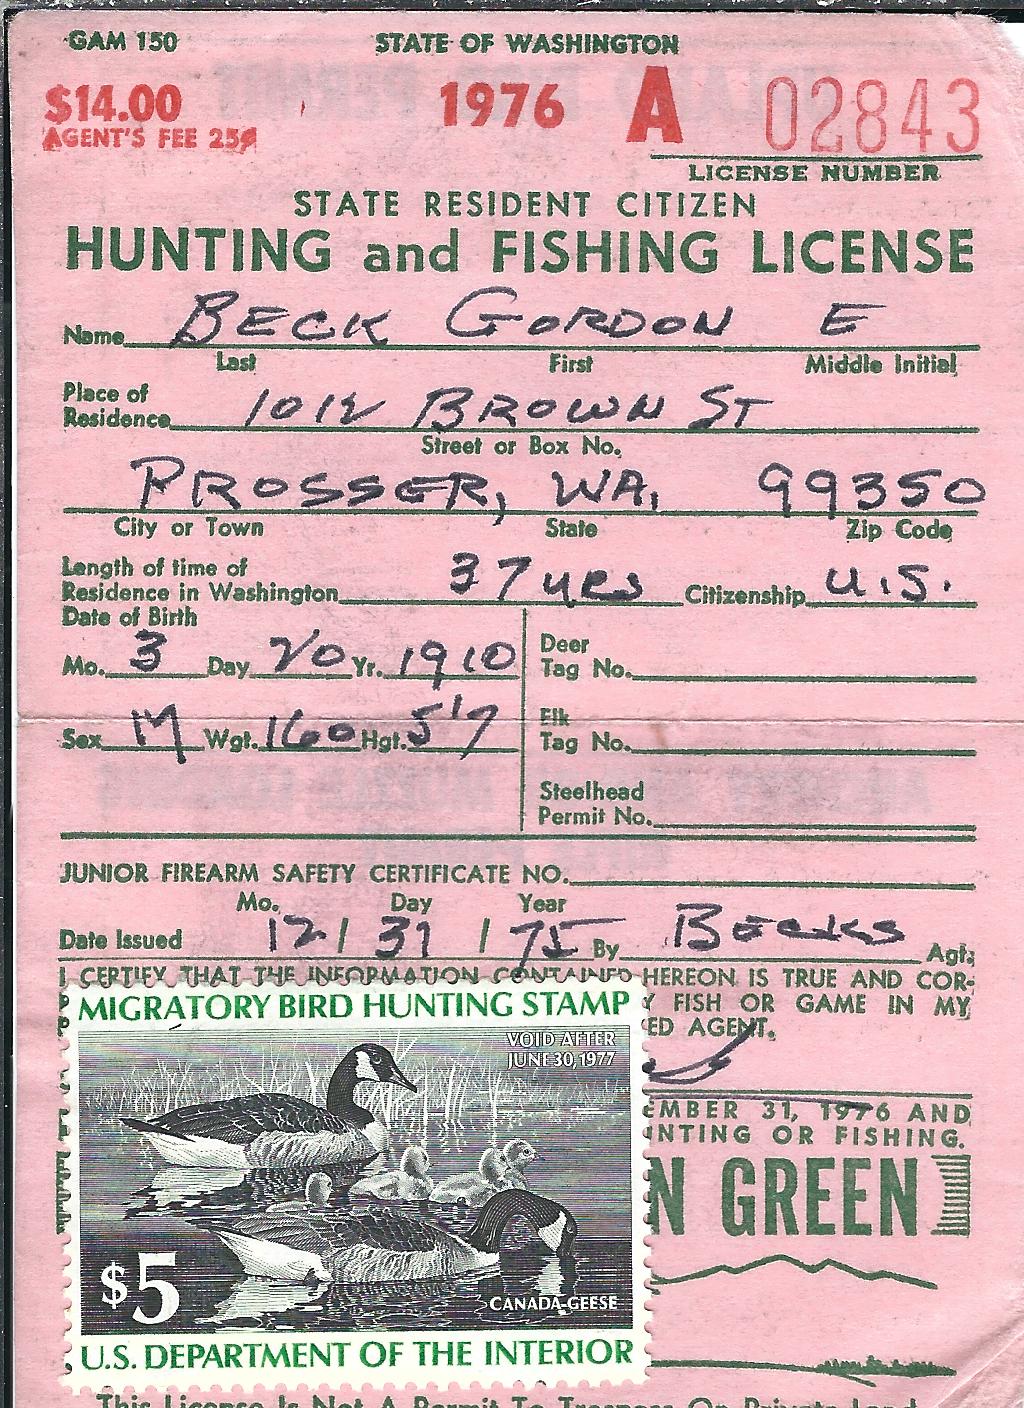 GAM 150 STATE OF WASHINGTON
$14.00 1976 A 02843
AGENT'S FEE 25¢
LICENSE NUMBER
STATE RESIDENT CITIZEN
HUNTING and FISHING LICENSE
Name BECK GORDON E
Last First Middle Initial
Place of
Residence 1012 BROWN ST
Street or Box No.
PROSSER, WA. 99350
City or Town State Zip Code
Length of time of
Residence in Washington 37 yrs Citizenship U.S.
Date of Birth
Mo. 3 Day 20 Yr. 1910
Deer
Tag No.
Sex M Wgt. 160 Hgt. 5'7
Elk
Tag No.
Steelhead
Permit No.
JUNIOR FIREARM SAFETY CERTIFICATE NO.
Mo. Day Year
Date Issued 12 / 31 / 75 By Becks Agt.
I CERTIFY THAT THE INFORMATION CONTAINED HEREON IS TRUE AND COR-
Y FISH OR GAME IN MY
ED AGENT.
EMBER 31, 1976 AND
NTING OR FISHING.
N GREEN
MIGRATORY BIRD HUNTING STAMP
VOID AFTER
JUNE 30, 1977
$5
CANADA GEESE
U.S. DEPARTMENT OF THE INTERIOR
This License Is Not A Permit To Trespass On Private Land